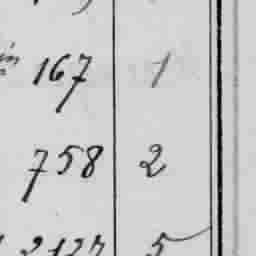 167 1
758 2
2127 5